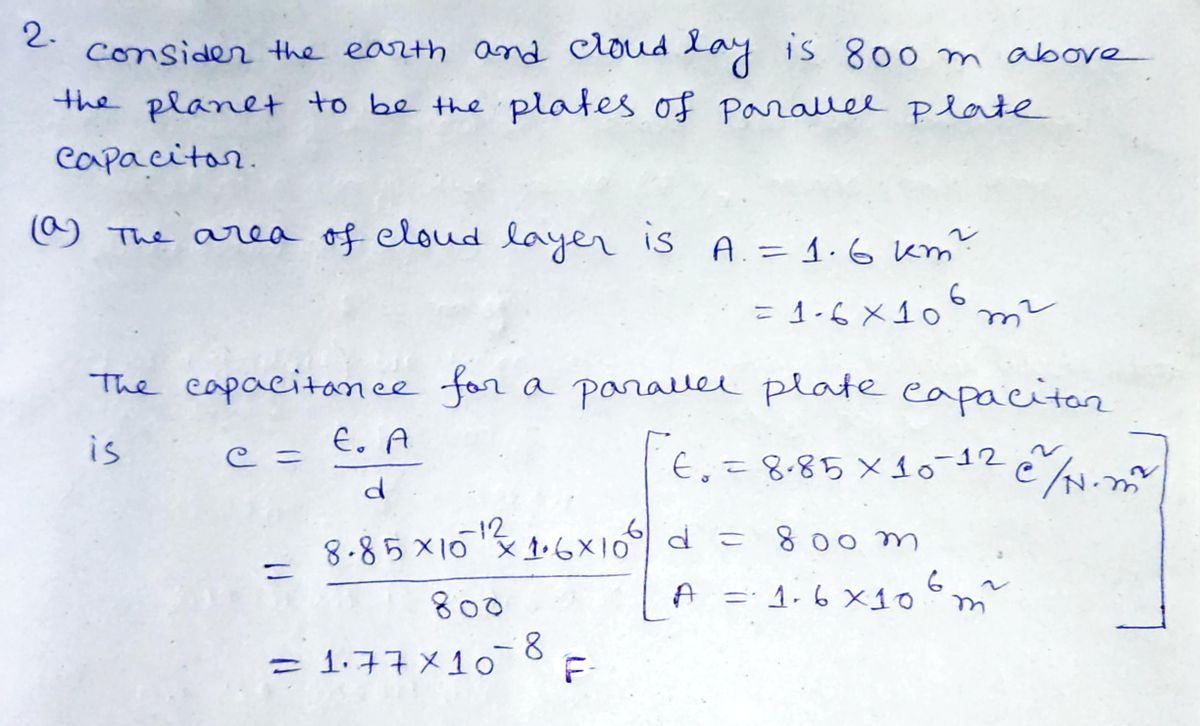 2. Consider the earth and cloud lay is 800 m above
the planet to be the plates of parallel plate
capacitor.
(a) The area of cloud layer is A = 1.6 km²
= 1.6 × 10⁶ m²
The capacitance for a parallel plate capacitor
is C = ε₀ A / d
[ε₀ = 8.85 × 10⁻¹² C²/N·m²
= 8.85 × 10⁻¹² × 1.6 × 10⁶ / 800
d = 800 m
A = 1.6 × 10⁶ m²]
= 1.77 × 10⁻⁸ F